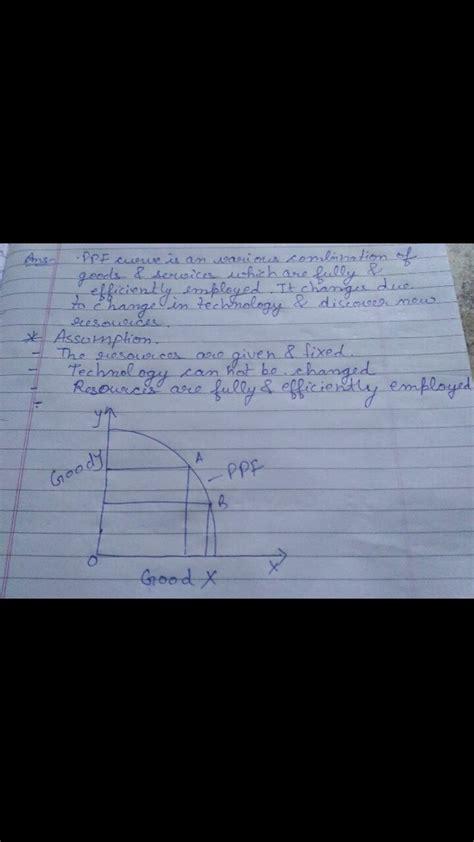 Ans- PPF curve is an various combination of
goods & services which are fully &
efficiently employed. It changes due
to change in technology & discover new
resources.
* Assumption.
- The resources are given & fixed.
- Technology can not be changed
- Resources are fully & efficiently employed
y
Good y
A
PPF
B
O
X
Good X